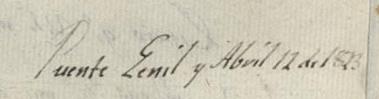 Puente Genil y Abril 12 de 1823